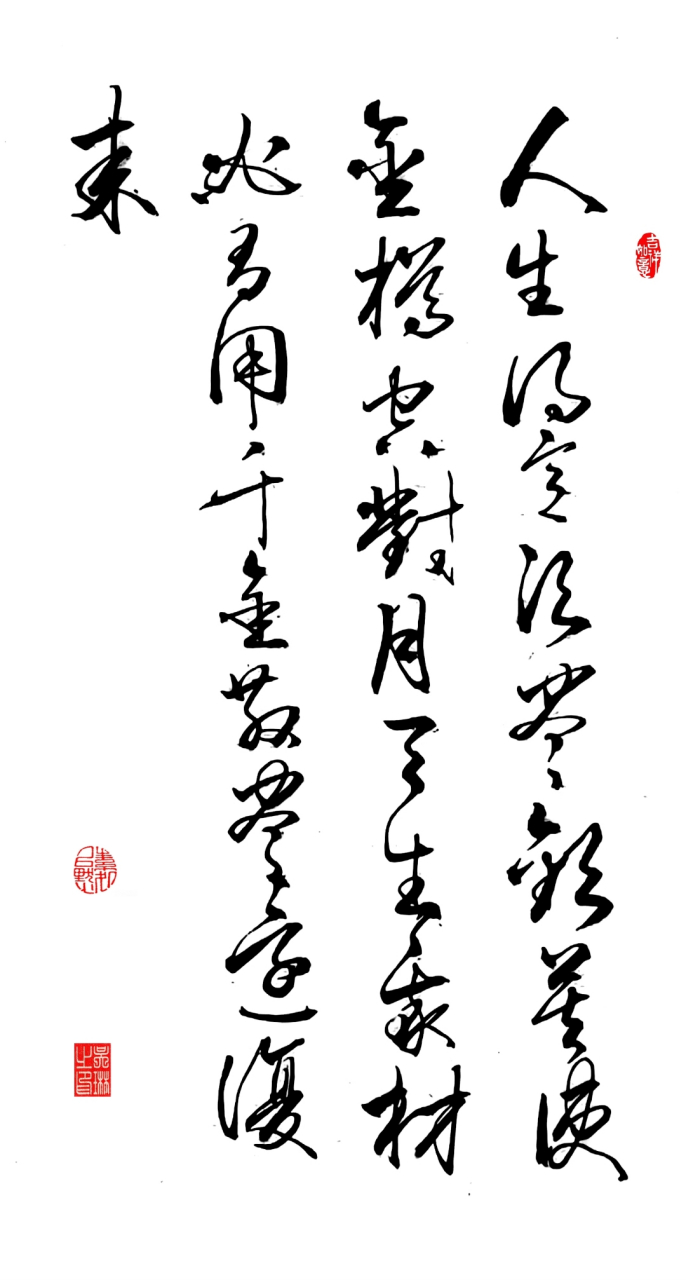 吉祥如意
人生得意須盡歡莫使
金樽空對月天生我材
必有用千金散盡還復
来